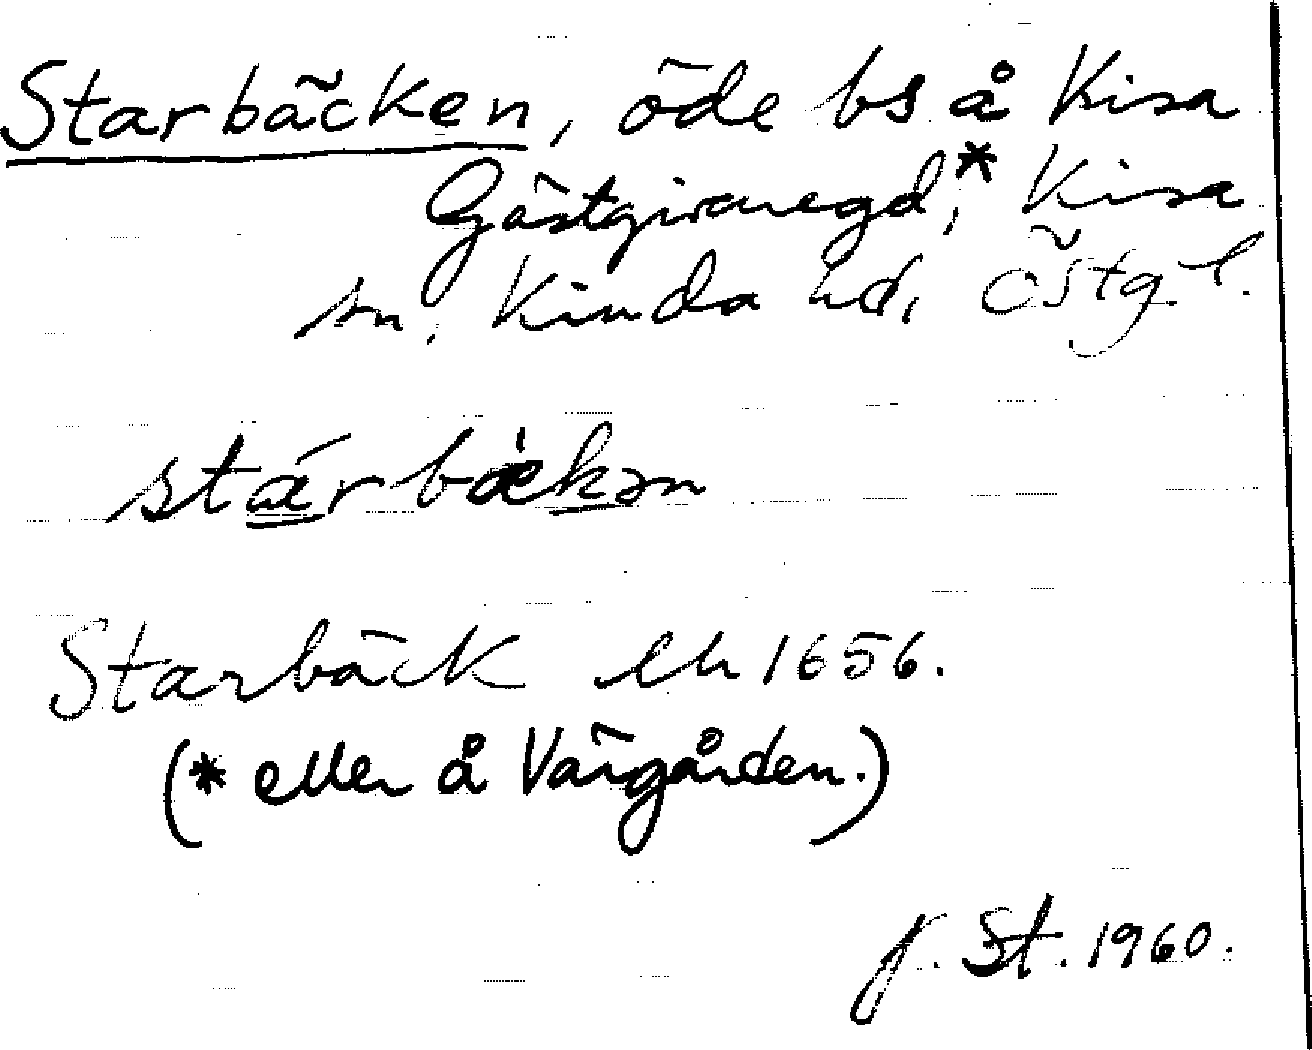 Starbäcken, öde bs å Kisa
Gästgivaregd,* Kisa
sn, Kinda hd, Östgl.
stǽrbækən
Starbäck lh 1656.
(* eller å Värgården.)
J. St. 1960.